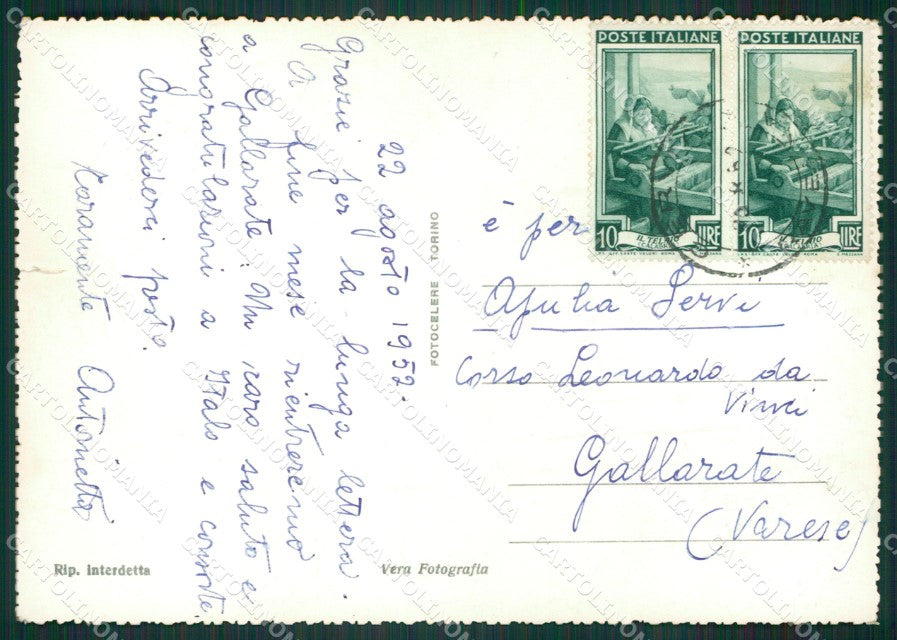 22 agosto 1952.
Grazie per la lunga lettera.
A fine mese rientreremo
a Gallarate. Un caro saluto e
congratulazioni a Italo e consorte.
Arrivederci presto.
Caramente Antonietta
Rip. Interdetta
Vera Fotografia
FOTOCELERE TORINO
POSTE ITALIANE
10 IL TELAIO LIRE
POSTE ITALIANE
10 IL TELAIO LIRE
è per
Servi
Corso Leonardo da
Vinci
Gallarate
(Varese)
CARTOLINOMANIA